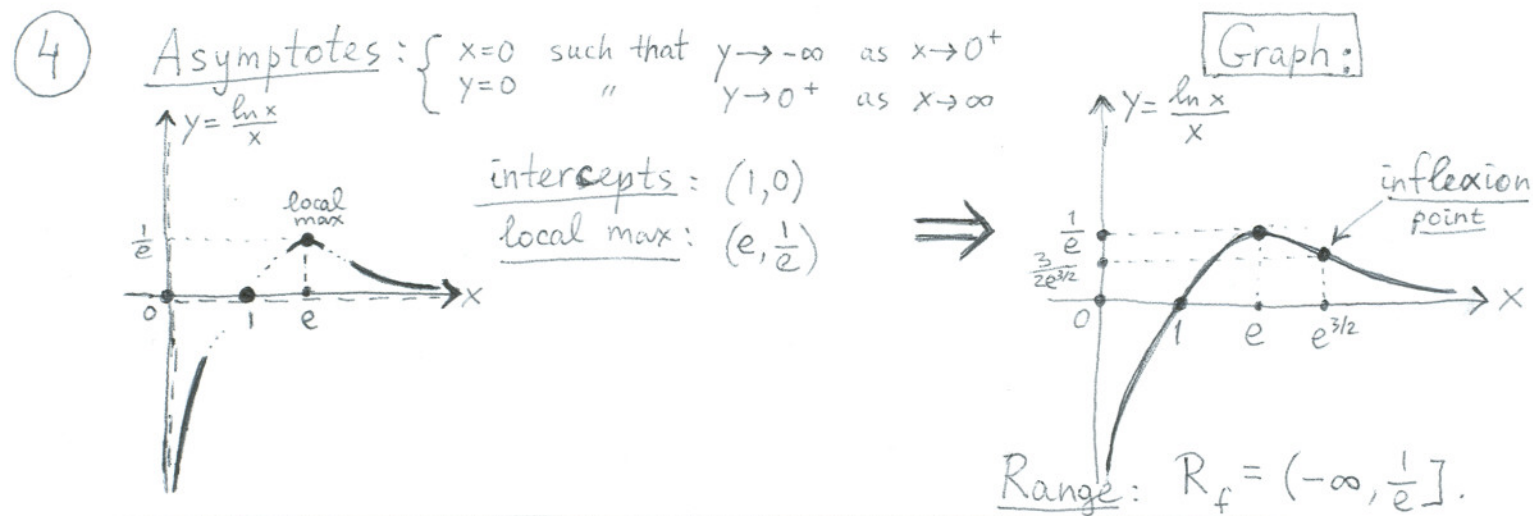 4
Asymptotes: { x=0 such that y→-∞ as x→0⁺
y=0 〃 y→0⁺ as x→∞
Graph:
y = ln x / x
local
max
1/e
0 1 e x
intercepts: (1,0)
local max: (e, 1/e)
⇒
y = ln x / x
inflexion
point
1/e
3/2e^3/2
0 1 e e^3/2 x
Range: R_f = (-∞, 1/e].